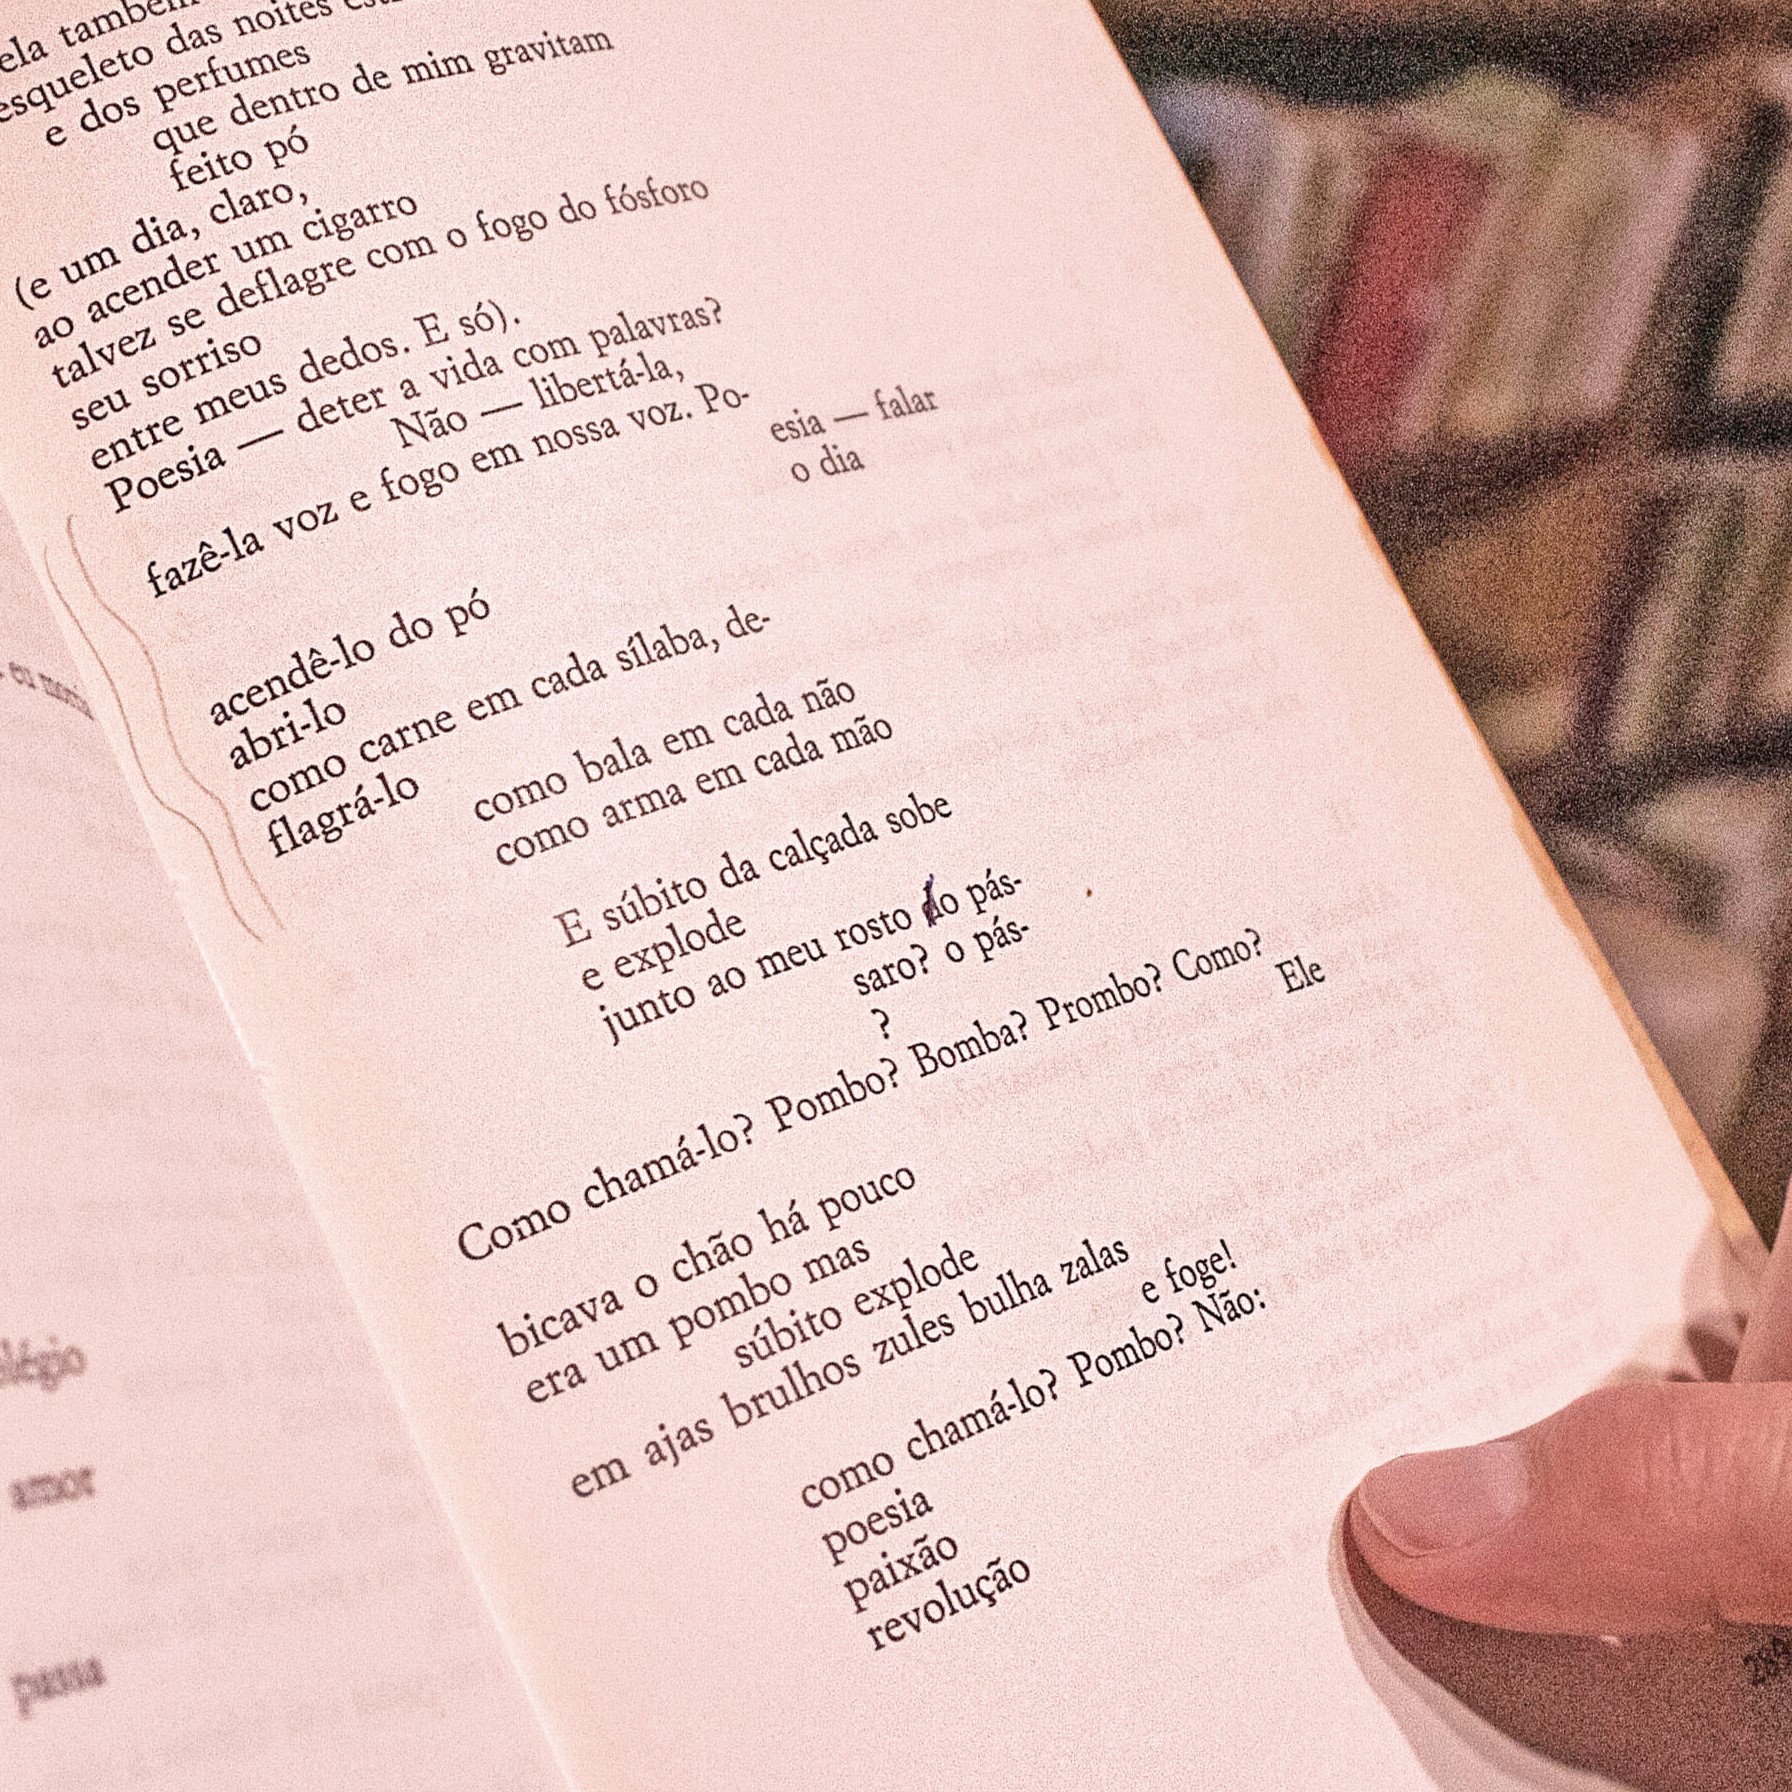 ela também
esqueleto das noites
e dos perfumes
que dentro de mim gravitam
feito pó
(e um dia, claro,
ao acender um cigarro
talvez se deflagre com o fogo do fósforo
seu sorriso
entre meus dedos. E só).
Poesia — deter a vida com palavras?
Não — libertá-la,
fazê-la voz e fogo em nossa voz. Po-
esia — falar
o dia
acendê-lo do pó
abri-lo
como carne em cada sílaba, de-
flagrá-lo
como bala em cada não
como arma em cada mão
E súbito da calçada sobe
e explode
junto ao meu rosto o pás-
saro? o pás-
?
Como chamá-lo? Pombo? Bomba? Prombo? Como?
Ele
bicava o chão há pouco
era um pombo mas
súbito explode
em ajas brulhos zules bulha zalas
e foge!
como chamá-lo? Pombo? Não:
poesia
paixão
revolução
amor
passa